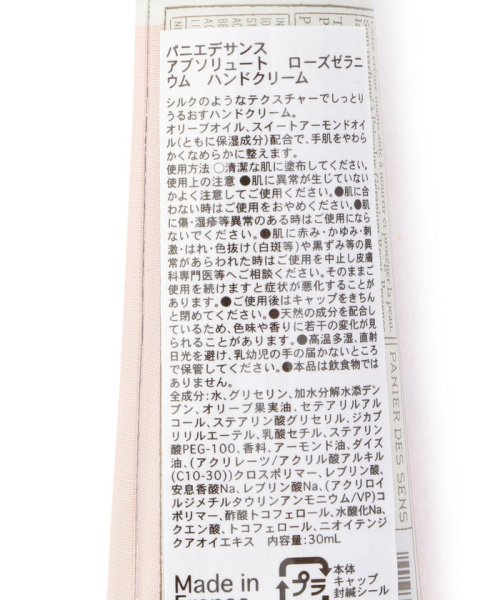 パニエデサンス
アブソリュート ローズゼラニ
ウム ハンドクリーム
シルクのようなテクスチャーでしっとり
うるおすハンドクリーム。
オリーブオイル、スイートアーモンドオイ
ル(ともに保湿成分)配合で、手肌をやわら
かくなめらかに整えます。
使用方法 ○清潔な肌に塗布してください。
使用上の注意 ●肌に異常が生じていない
かよく注意してご使用ください。●肌に合
わない時はご使用をおやめください。●肌
に傷・湿疹等異常のある時はご使用になら
ないでください。●肌に赤み・かゆみ・刺
激・はれ・色抜け(白斑等)や黒ずみ等の異
常があらわれた時はご使用を中止し皮膚
科専門医等へご相談ください。そのままご
使用を続けますと症状が悪化することが
あります。●ご使用後はキャップをきちん
と閉めてください。●天然の成分を配合し
ているため、色味や香りに若干の変化が見
られることがあります。●高温多湿、直射
日光を避け、乳幼児の手の届かないところ
で保管してください。●本品は飲食物では
ありません。
全成分:水、グリセリン、加水分解水添デン
プン、オリーブ果実油、セテアリルアル
コール、ステアリン酸グリセリル、ジカプ
リリルエーテル、乳酸セチル、ステアリン
酸PEG-100、香料、アーモンド油、ダイズ
油、(アクリレーツ/アクリル酸アルキル
(C10-30))クロスポリマー、レブリン酸、
安息香酸Na、レブリン酸Na、(アクリロイ
ルジメチルタウリンアンモニウム/VP)コ
ポリマー、酢酸トコフェロール、水酸化Na、
クエン酸、トコフェロール、ニオイテンジ
クアオイエキス 内容量:30mL
Made in
France
プラ
本体
キャップ
封緘シール
PANIER DES SENS